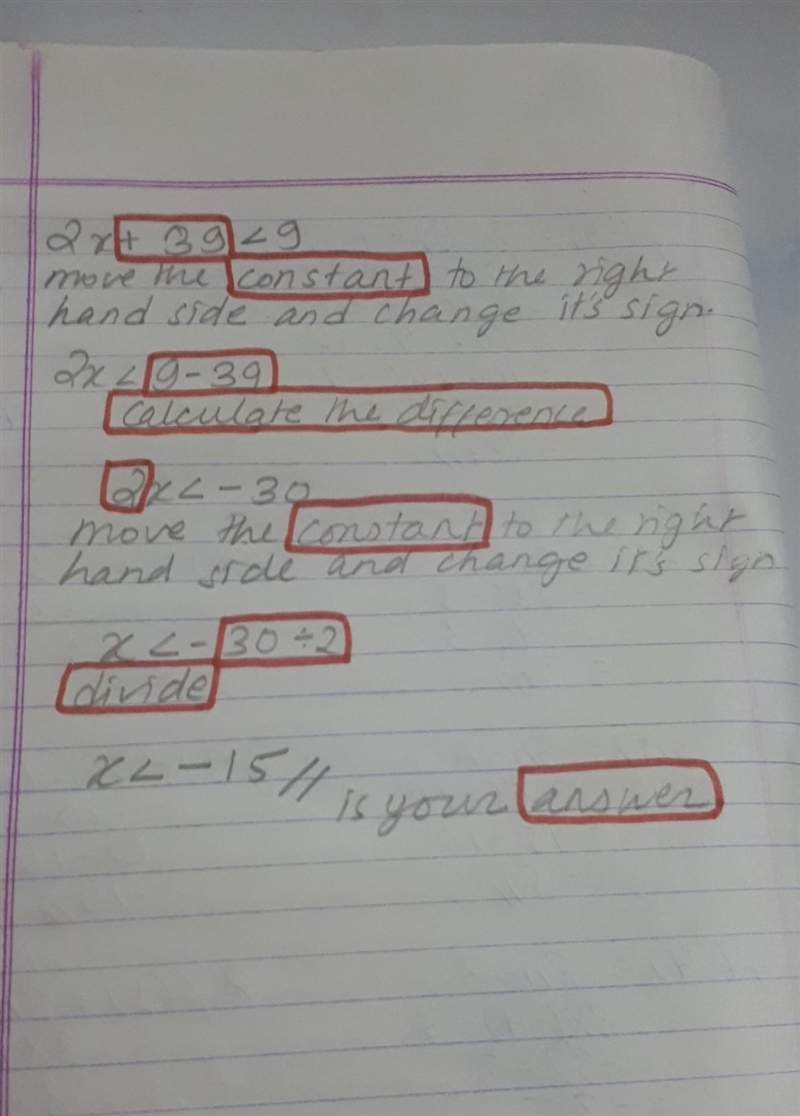 2x + 39 < 9
move the constant to the right
hand side and change it's sign.
2x < 9 - 39
calculate the difference
2x < - 30
move the constant to the right
hand side and change it's sign
x < - 30 ÷ 2
divide
x < - 15 //
is your answer